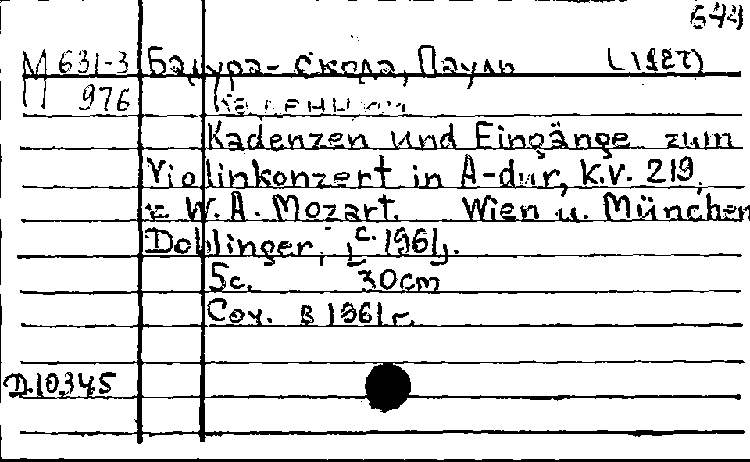 644
М 631-3 Бадура-Скода, Пауль (1927)
П 976 Каденции
Kadenzen und Eingänge zum
Violinkonzert in A-dur, K.V. 219,
v. W. A. Mozart. Wien u. München
Doblinger, [c. 1961].
5c. 30cm
Соч. в 1961 г.
D.10.345